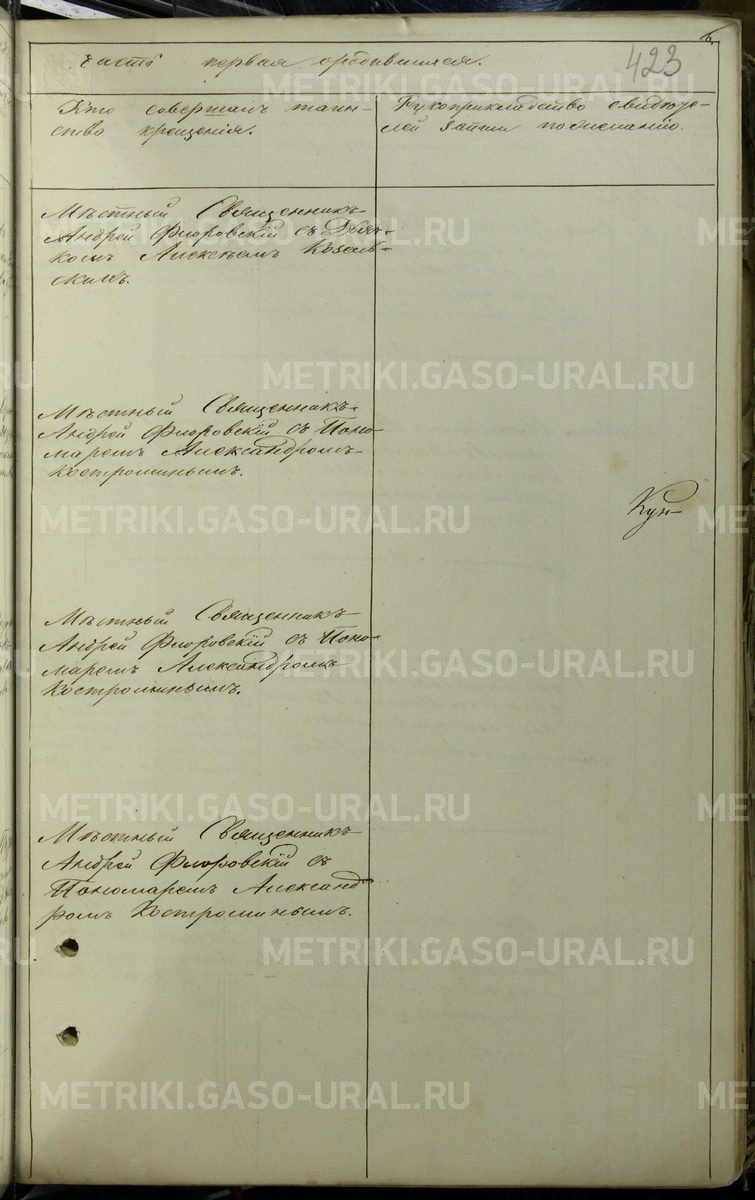 6.
423
Часть первая о родившихся.
Кто совершалъ таин-
ство крещенія.
Рукоприкладство свидѣте-
лей записи по желанію.
Мѣстный Священникъ
Андрей Флоровскій съ Дьяч-
комъ Алексѣемъ Козель-
скимъ.
Мѣстный Священникъ
Андрей Флоровскій съ Поно-
маремъ Александромъ
Костроминымъ.
Кун-
Мѣстный Священникъ
Андрей Флоровскій съ Поно-
маремъ Александромъ
Костроминымъ.
Мѣстный Священникъ
Андрей Флоровскій съ
Пономаремъ Александ
ромъ Костроминымъ.
METRIKI.GASO-URAL.RU